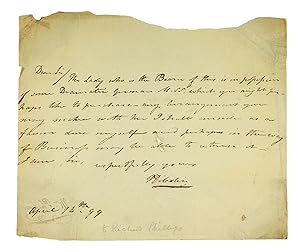 Dear Sir/ The Lady who is the Bearer of this is in possession
of some Dramatic German M.SS which you might per-
haps like to purchase - any encouragement you
may make with her I shall consider as a
favour done myself and perhaps in the way
of Business may be able to return it -
I am, Sir, respectfully yours
April 14th 99
to Richard Phillips